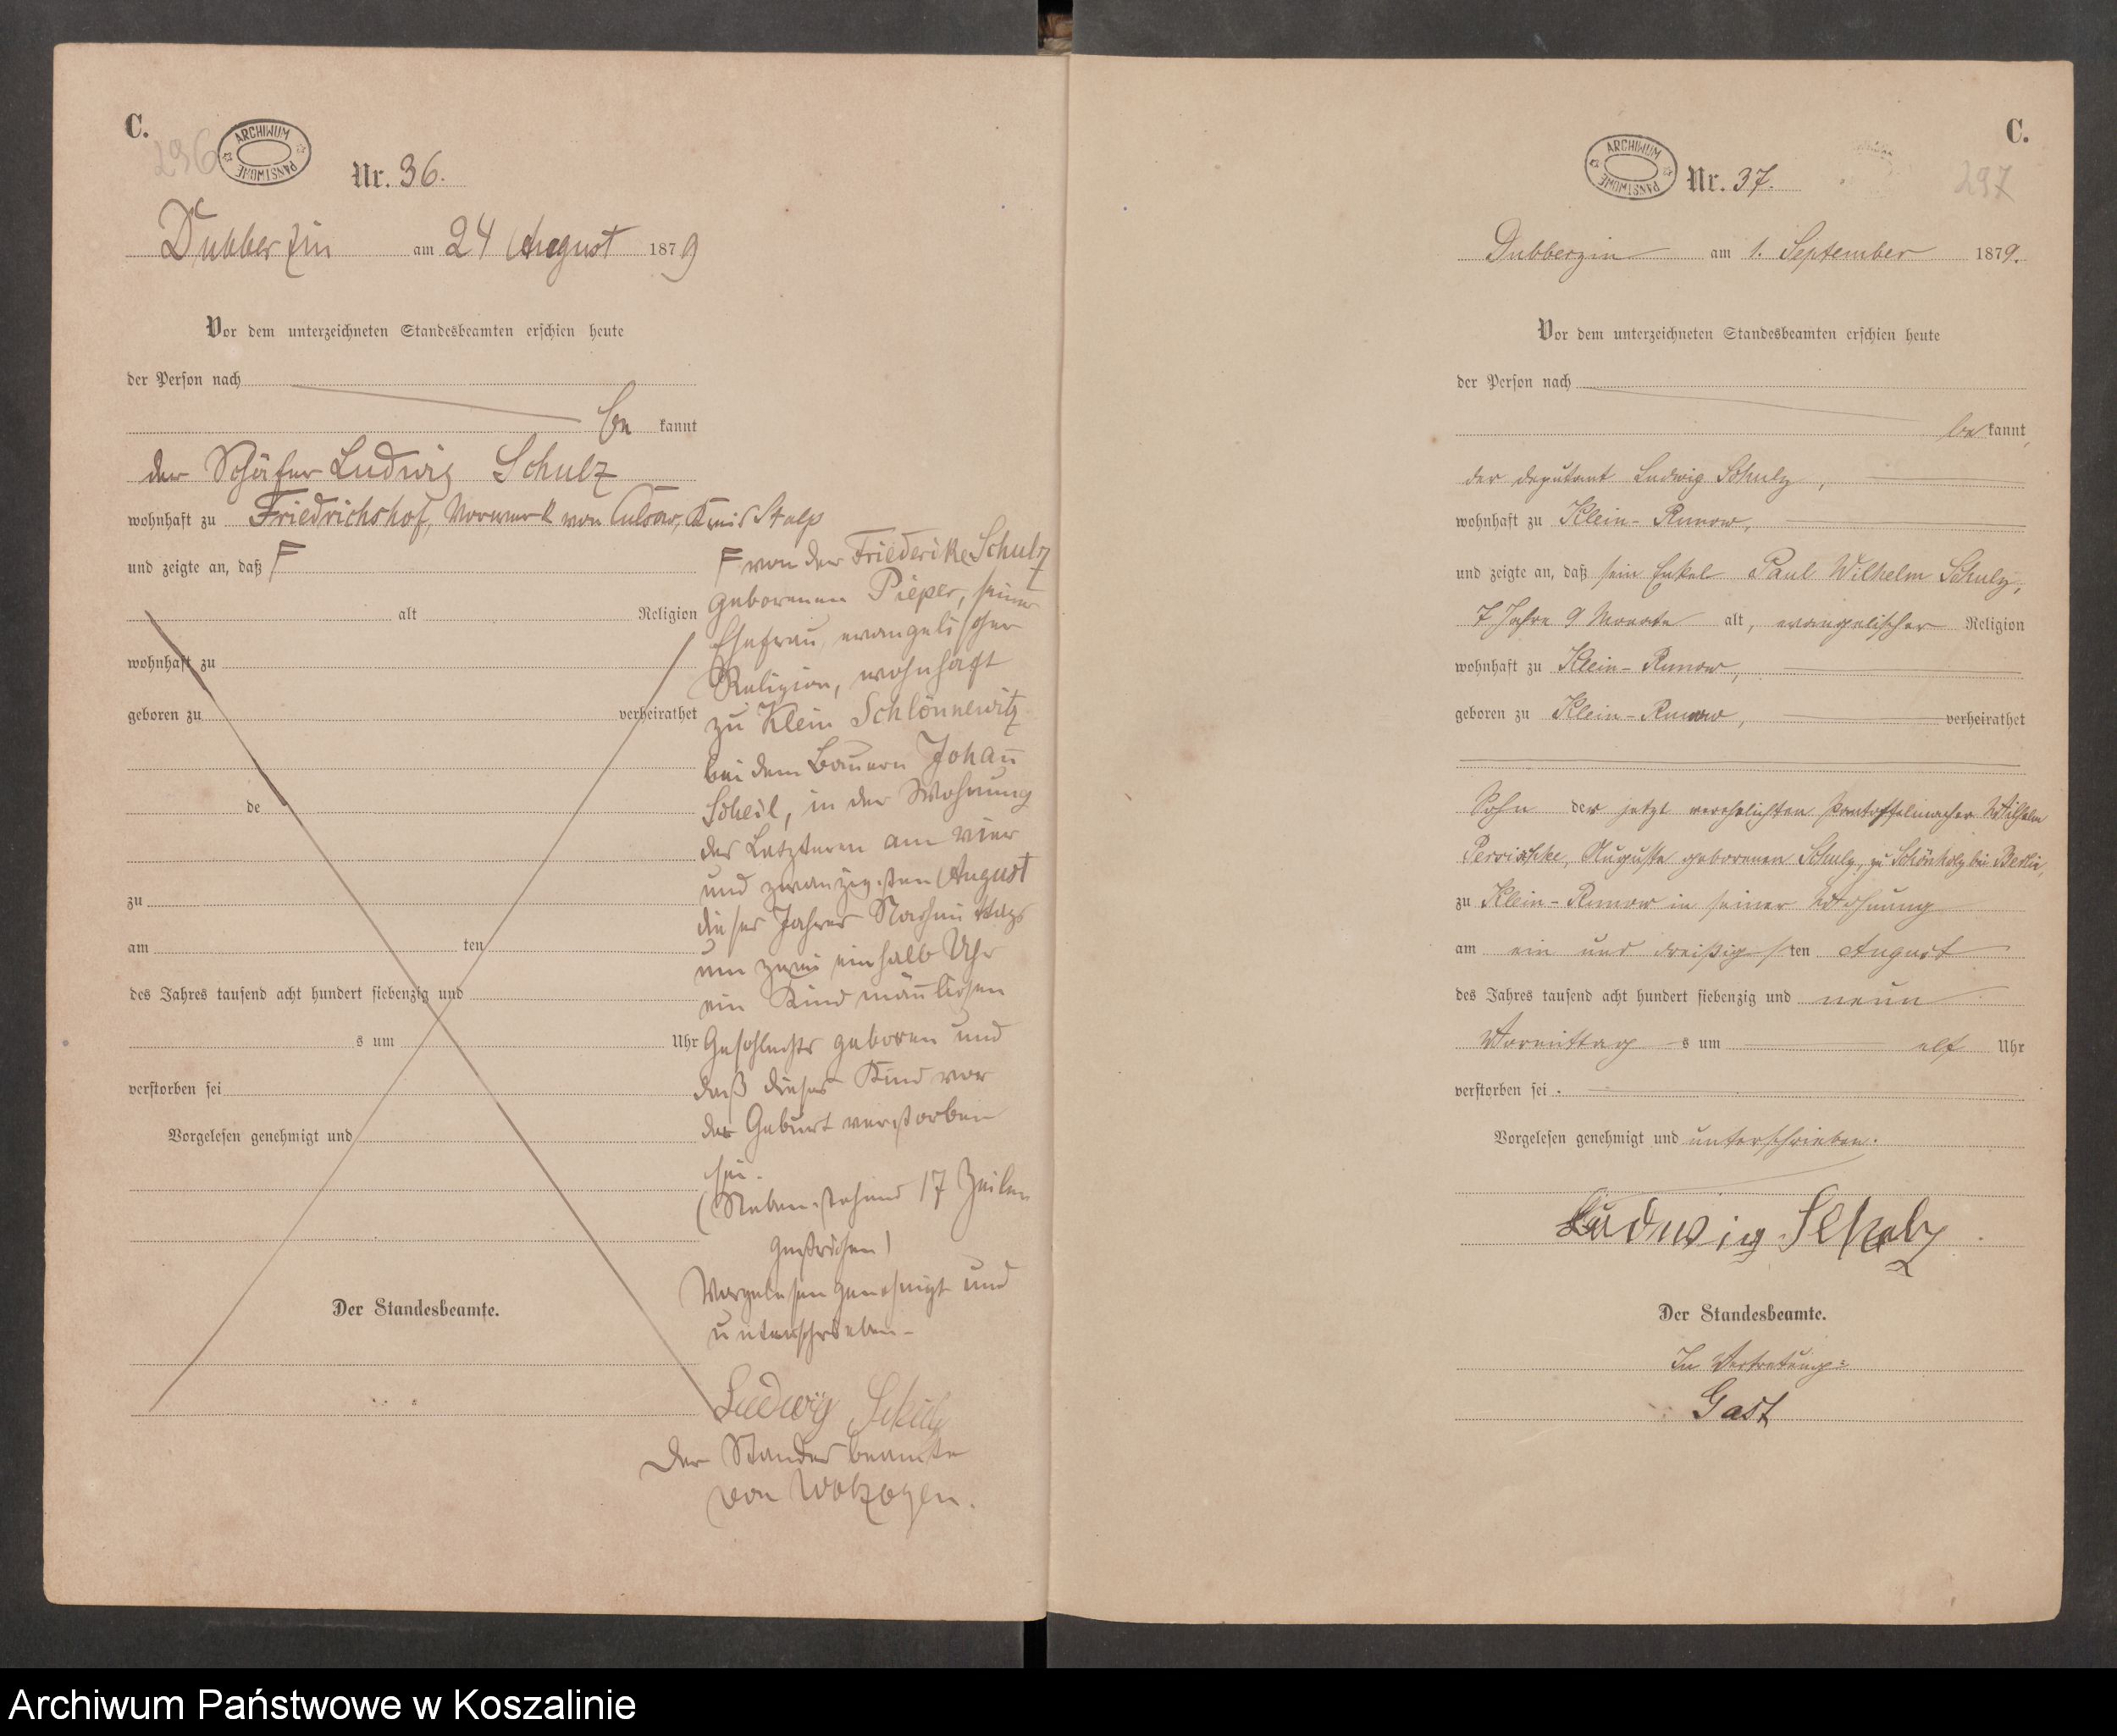 C.
296
ARCHIWUM PAŃSTWOWE
Nr. 36.
Dubberzin am 24 August 1879
Vor dem unterzeichneten Standesbeamten erschien heute
der Person nach
be kannt
der Schäfer Ludwig Schulz
wohnhaft zu Friedrichshof, Vorwerk von Culsow, Kreis Stolp
und zeigte an, daß F
alt Religion
wohnhaft zu
geboren zu verheirathet
de
zu
am ten
des Jahres tausend acht hundert siebenzig und
s um Uhr
verstorben sei
Vorgelesen genehmigt und
Der Standesbeamte.
F von der Friederike Schulz
geborenen Pieper, seiner
Ehefrau, evangelischer
Religion, wohnhaft
zu Klein Schlönnewitz
bei dem Bauern Johan̄
Scheil, in der Wohnung
des Letzteren am vier
und zwanzigsten August
dieses Jahres Nachmittags
um zwei einhalb Uhr
ein Kind män̄lichen
Geschlechts geboren und
daß dieses Kind vor
der Geburt verstorben
sei.
(Nebenstehend 17 Zeilen
gestrichen)
Vorgelesen genehmigt und
unterschrieben-
Ludwig Schulz
Der Standesbeamte
von Wolzogen.
C.
297
ARCHIWUM PAŃSTWOWE
Nr. 37.
Dubberzin am 1. September 1879.
Vor dem unterzeichneten Standesbeamten erschien heute
der Person nach
be kannt,
der Deputant Ludwig Schulz,
wohnhaft zu Klein-Runow,
und zeigte an, daß sein Enkel Paul Wilhelm Schulz,
7 Jahre 9 Monate alt, evangelischer Religion
wohnhaft zu Klein-Runow,
geboren zu Klein-Runow, verheirathet
Sohn der jetzt verehelichten Pantoffelmacher Wilhelm
Auguste geborenen Schulz, zu Schönholz bei Berlin,
zu Klein-Runow in seiner Wohnung
am ein und dreißigsten August
des Jahres tausend acht hundert siebenzig und neun
Vormittag s um elf Uhr
verstorben sei.
Vorgelesen genehmigt und unterschrieben.
Ludwig Schulz
Der Standesbeamte.
In Vertretung:
Gast
Archiwum Państwowe w Koszalinie